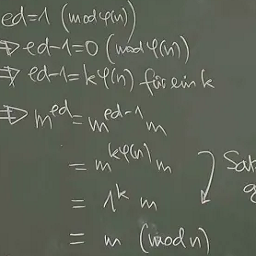 ed=1 (mod φ(n))
⇒ ed-1=0 (mod φ(n))
⇒ ed-1=kφ(n) für ein k
⇒ m^ed = m^ed-1 m
= m^kφ(n) m
= 1^k m
= m (mod n)